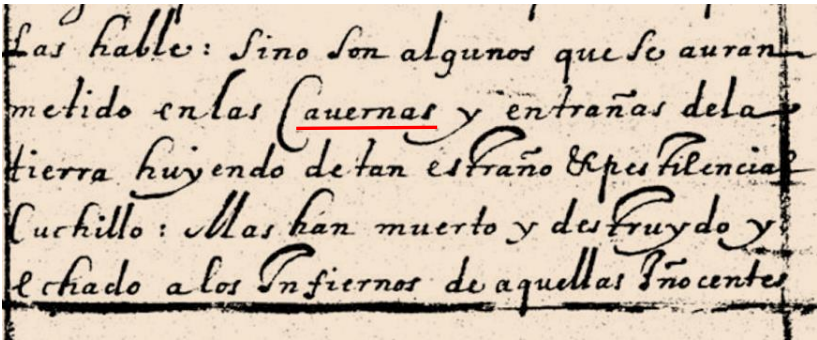 Las hable: Sino son algunos que se auran
metido en las Cauernas y entrañas dela
tierra huyendo de tan estraño & pestilencial
Cuchillo: Mas han muerto y destruydo y
echado a los Infiernos de aquellas Iñocentes